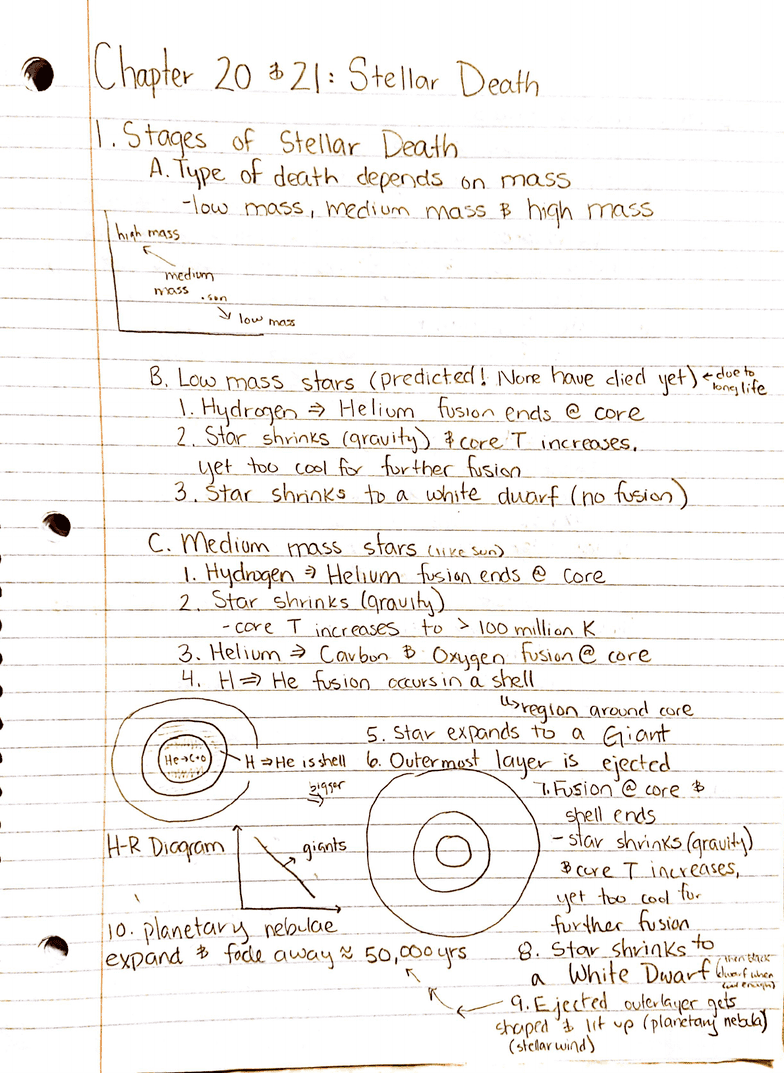 Chapter 20 & 21: Stellar Death
1. Stages of Stellar Death
A. Type of death depends on mass
-low mass, medium mass & high mass
high mass
medium
mass
.sun
low mass
B. Low mass stars (predicted! None have died yet) ← due to
long life
1. Hydrogen ⇒ Helium fusion ends @ core
2. Star shrinks (gravity) & core T increases,
yet too cool for further fusion
3. Star shrinks to a white dwarf (no fusion)
C. Medium mass stars (like sun)
1. Hydrogen ⇒ Helium fusion ends @ core
2. Star shrinks (gravity)
-core T increases to > 100 million K
3. Helium ⇒ Carbon & Oxygen fusion @ core
4. H ⇒ He fusion occurs in a shell
↳ region around core
5. Star expands to a Giant
He→C+O
H ⇒ He is shell
6. Outermost layer is ejected
bigger
7. Fusion @ core &
shell ends
- star shrinks (gravity)
& core T increases,
yet too cool for
further fusion
H-R Diagram
giants
8. Star shrinks to
a White Dwarf (then black
dwarf when
cool enough)
9. Ejected outerlayer gets
shaped & lit up (planetary nebula)
(stellar wind)
10. planetary nebulae
expand & fade away ≈ 50,000 yrs